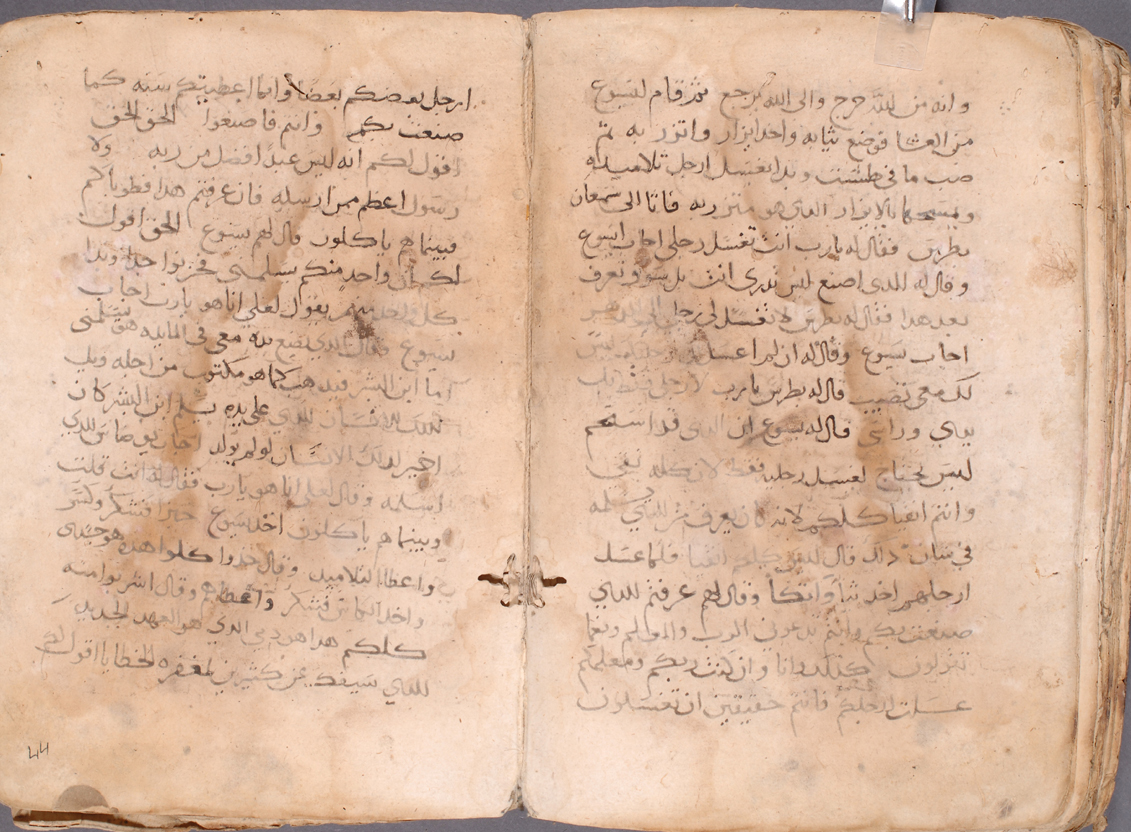 وانه من الله خرج والى الله يرجع ثم قام ليسوع
من العشا فوضع ثيابه واخد ايزار واتزر به ثم
صب ما في طشت وبدا يغسل ارجل تلاميده
ويمسحها بالايزار الدي هو متزر به فاتا الى سمعان
بطرس فقال له يارب انت تغسل رجلي اجاب ايسوع
وقال له الدي اصنع ليس تدري انت بل سوف تعرف
بعد هدا فقال له بطرس لا تغسل لي رجل الى الدهر
اجاب يسوع وقال له ان لم اغسل رجليك ليس
لك معي نصيب قال له بطرس يارب لا رجلي فقط بل
يدي وراسي قال له يسوع ان الدي قد استحم
ليس يحتاج لغسل رجليه فقط لان كله نقي
وانتم انقيا كلكم لانه كان يعرف من الدي يسلمه
في شان دلك قال ليس كلكم انقيا فلما غسل
ارجلهم اخد ثيا واتكا وقال لهم عرفتم للدي
صنعت بكم وانتم تدعوني الرب والمعلم ونعما
تقولون كدلك وانا وان كنت ربكم ومعلمكم
غسلت ارجلكم فانتم حقيقين ان تغسلون
ارجل بعضكم بعضا وانما اعطيتكم سنه كما
صنعت بكم وانتم فاصنعوا الحق الحق
اقول لكم انه ليس عبدا افضل من ربه ولا
رسول اعظم ممن ارسله فان عرفتم هدا فطوباكم
فبينما هم ياكلون قال لهم يسوع الحق اقول
لكم ان واحد منكم سيسلمني فحزنوا جدا وبدا
كل واحد منهم يقول لعلي انا هو يارب اجاب
يسوع وقال الدي يضع يده معي في المايده هو يسلمني
اما ابن البشر فيدهب كما هو مكتوب من اجله وويل
لدلك الانسان الدي على يده يسلم ابن البشر كان
اخير لدلك الانسان لو لم يولد اجاب يوضاس الدي
اسلمه وقال لعلي انا هو يارب فقال له انت قلت
وبينما هم ياكلون اخد يسوع خبزا فتشكر وكسر
واعطا التلاميد وقال خدوا كلوا هدا هو جسدي
واخد الكاس فتشكر واعطاهم وقال اشربوا منه
كلكم هدا هو دمي الدي هو العهد الجديد
للدي سيسفك عن كثيرين لمغفره الخطايا اقول لكم
44